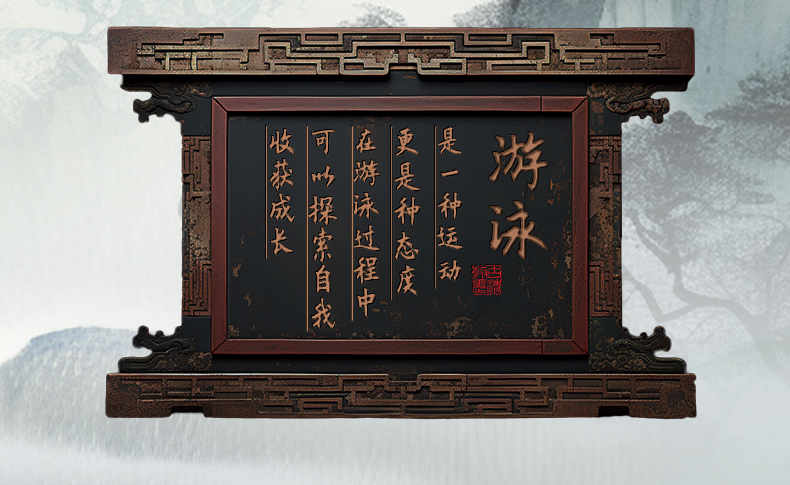 游泳
是一种运动
更是种态度
在游泳过程中
可以探索自我
收获成长